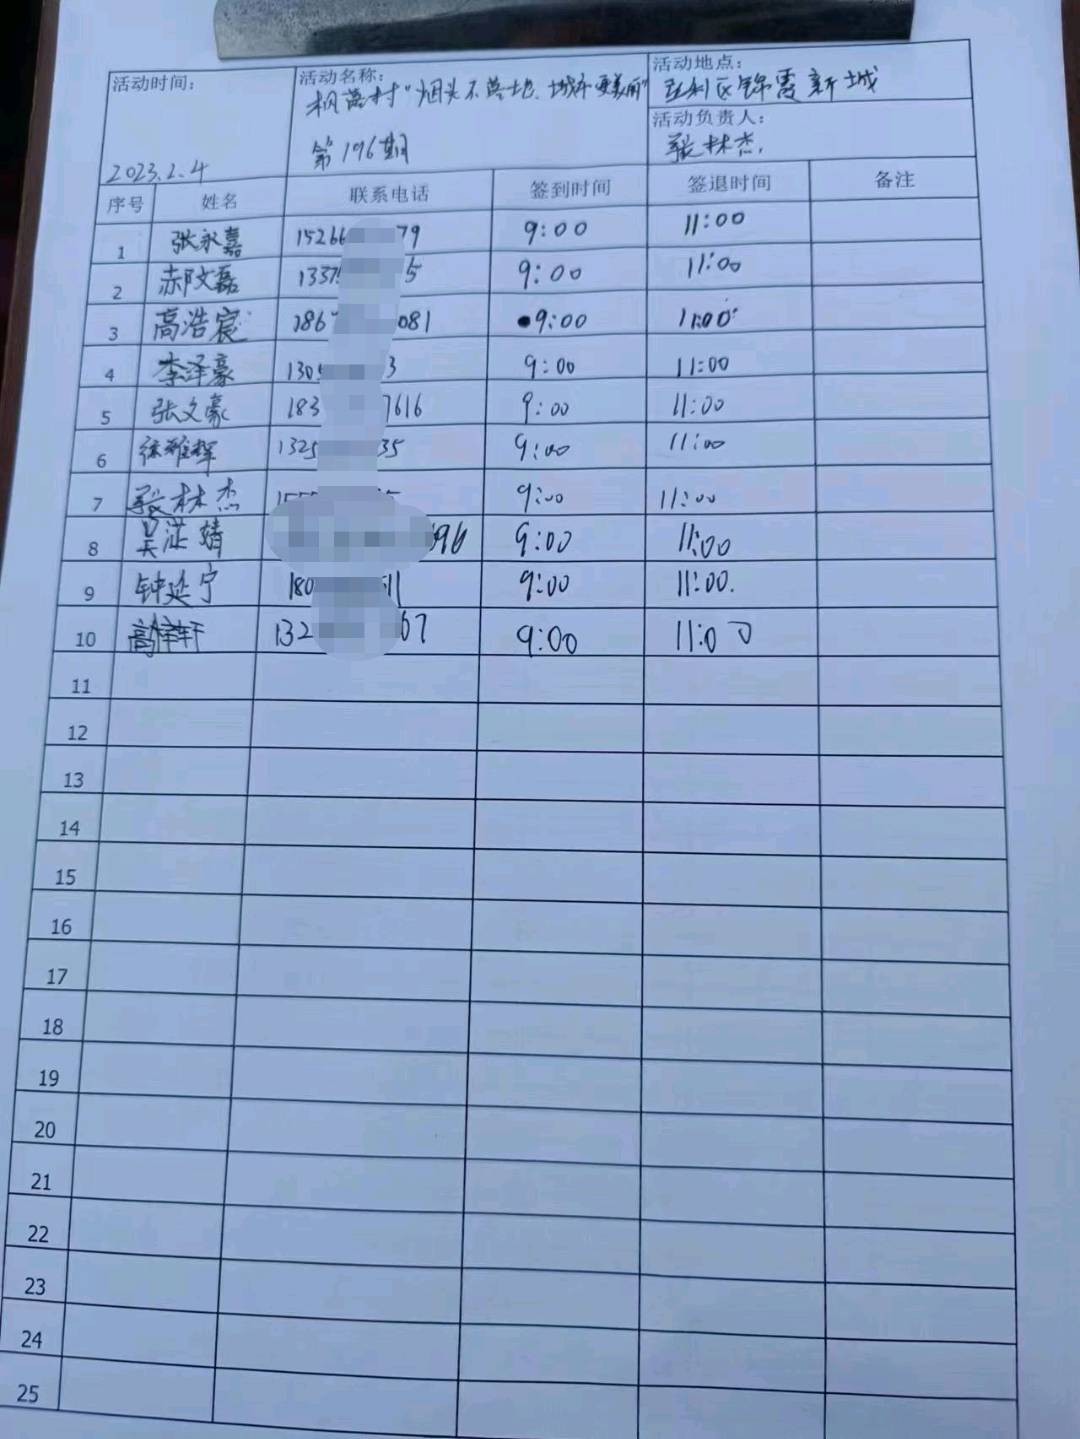 活动时间：
2023.2.4
活动名称：
枫荫村"烟头不落地、城市更美丽"
第196期
活动地点：
垦利区锦霞新城
活动负责人：
张林杰.
序号 姓名 联系电话 签到时间 签退时间 备注
1 张永嘉 15266 79 9:00 11:00
2 郝文磊 1337 5 9:00 11:00
3 高浩宸 186 081 9:00 11:00
4 李泽豪 130 3 9:00 11:00
5 张文豪 183 7616 9:00 11:00
6 徐雅辉 1325 35 9:00 11:00
7 张林杰 9:00 11:00
8 吴 靖 696 9:00 11:00
9 钟延宁 180 11 9:00 11:00.
10 132 67 9:00 11:00
11
12
13
14
15
16
17
18
19
20
21
22
23
24
25